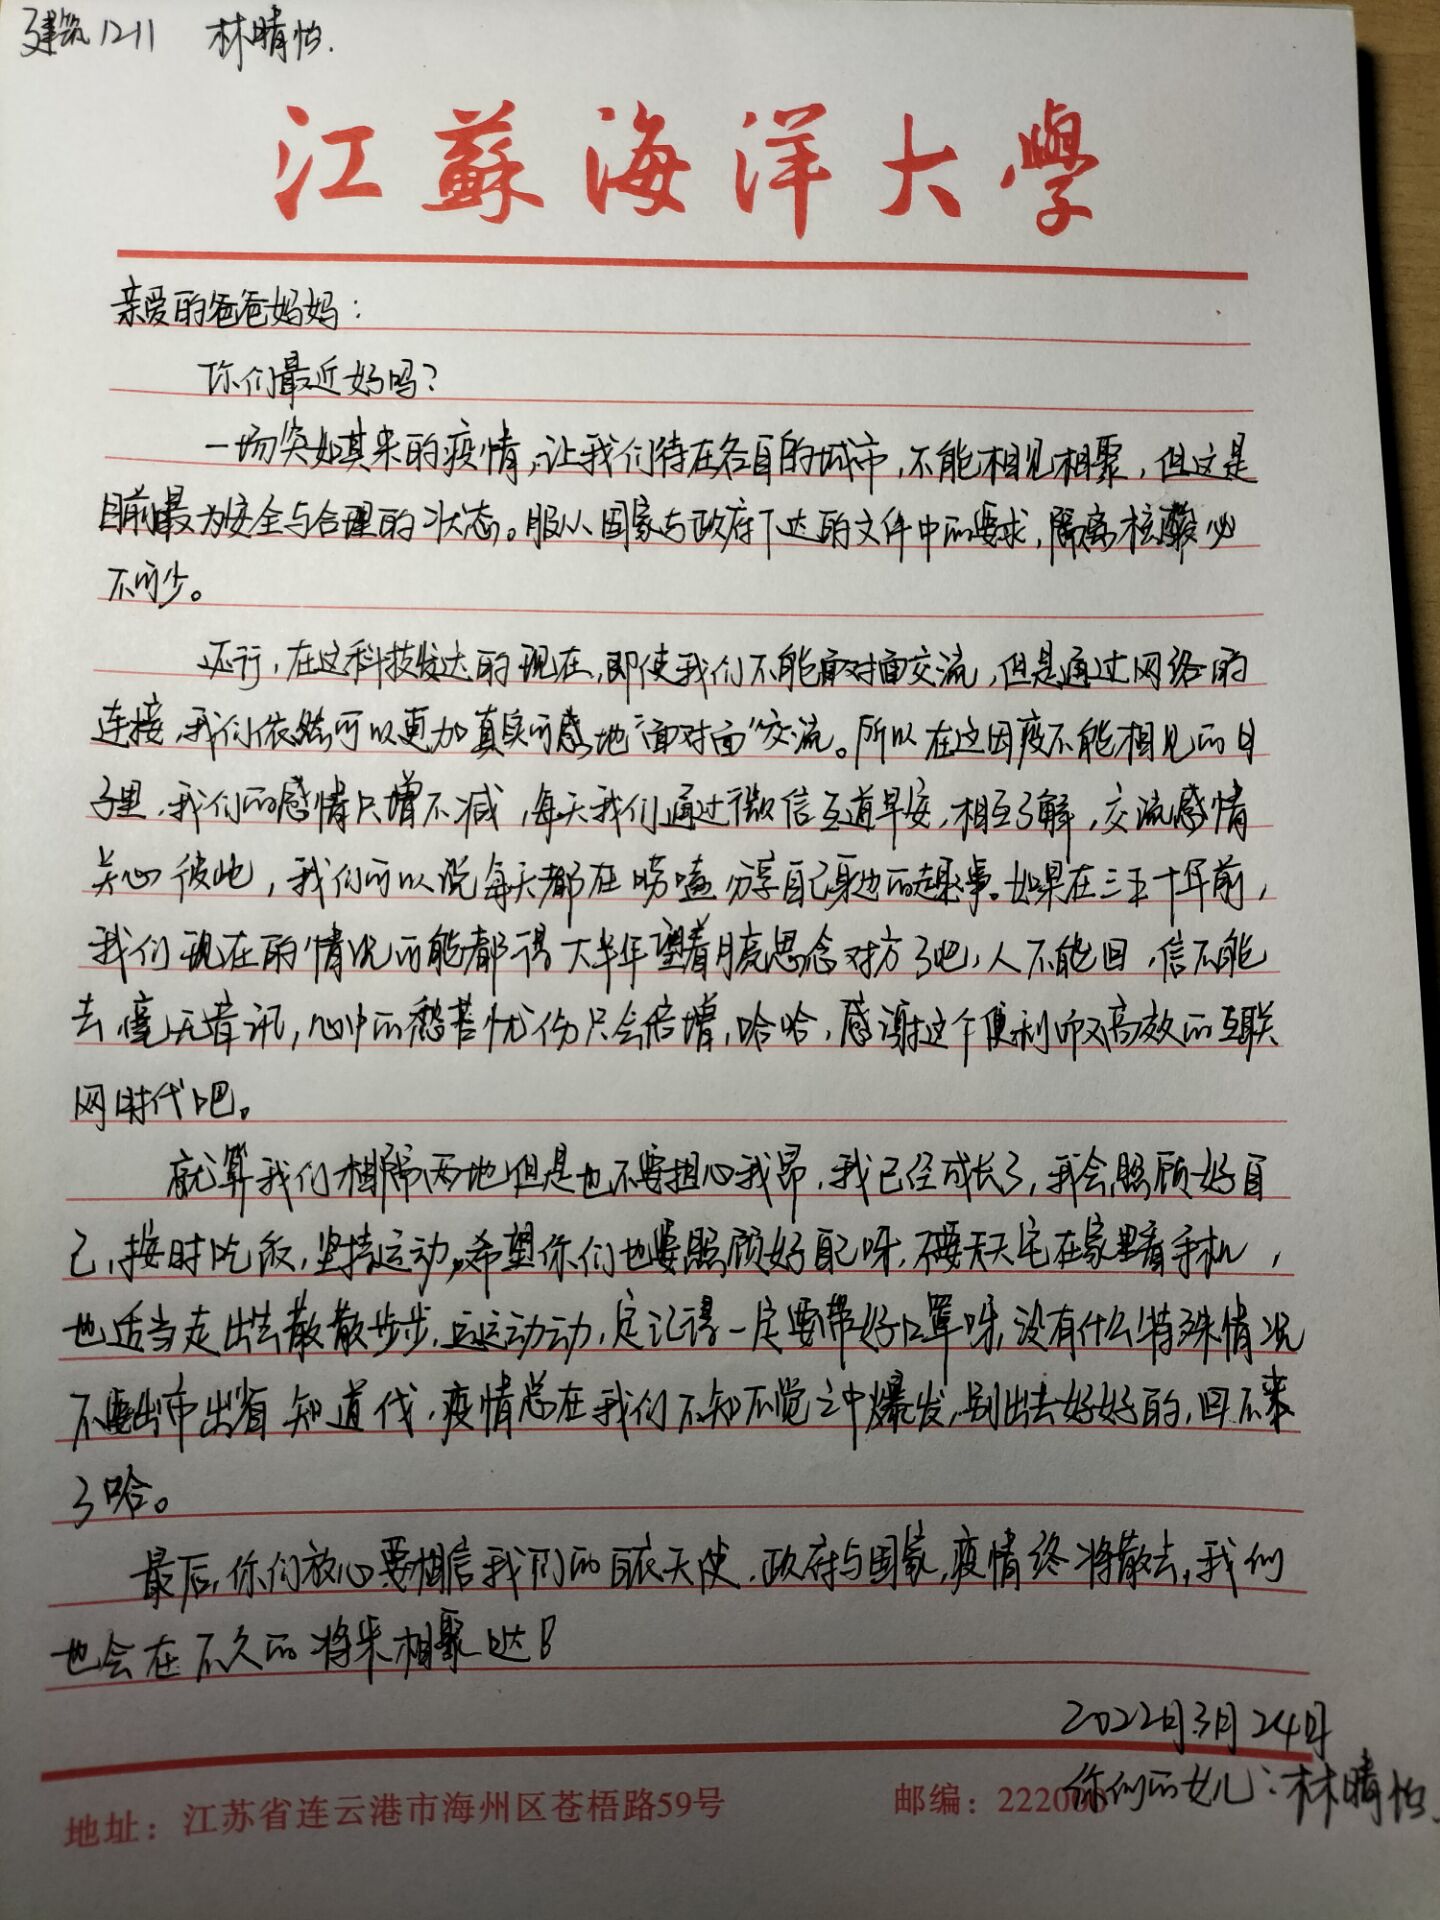 建筑1211 林晴怡.
江蘇海洋大學
亲爱的爸爸妈妈：
你们最近好吗？
一场突如其来的疫情，让我们待在各自的城市，不能相见相聚，但这是
目前最为安全与合理的状态。服从国家与政府下达的文件中的要求，隔离核酸必
不可少。
还行，在这科技发达的现在，即使我们不能面对面交流，但是通过网络的
连接，我们依然可以更加真实可感地“面对面”交流。所以在这因疫不能相见的日
子里，我们的感情只增不减，每天我们通过微信互道早安，相互了解，交流感情
关心彼此，我们可以说每天都在唠嗑分享自己身边的趣事。如果在三五十年前，
我们现在的情况可能都得大半年望着月亮思念对方了吧，人不能回，信不能
去，毫无音讯，心中的愁苦忧伤只会倍增，哈哈，感谢这个便利而又高效的互联
网时代吧。
就算我们相隔两地但是也不要担心我昂，我已经成长了，我会照顾好自
己，按时吃饭，坚持运动。希望你们也要照顾好自己呀，不要天天宅在家里看手机，
也适当走出去散散步步，运运动动，定记得一定要带好口罩呀，没有什么特殊情况
不要出市出省 知道伐，疫情总在我们不知不觉之中爆发，别出去好好的，回不来
了哈。
最后，你们放心要相信我们的白衣天使，政府与国家，疫情终将散去，我们
也会在不久的将来相聚哒！
2022年3月24日
你们的女儿：林晴怡.
地址：江苏省连云港市海州区苍梧路59号
邮编：22200